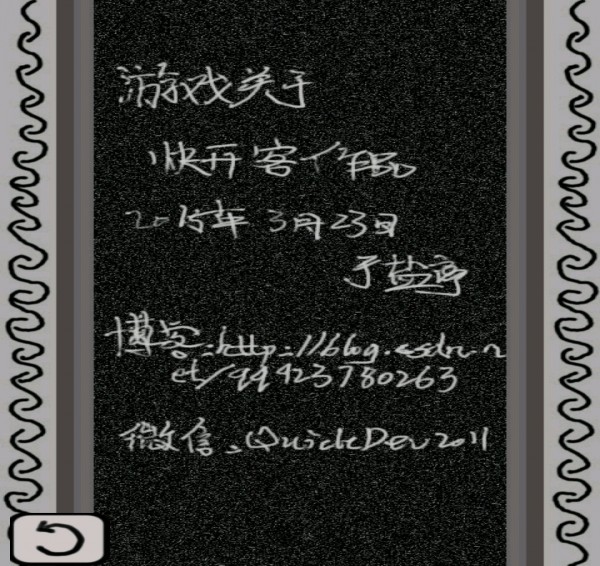 游戏关于
快开客作品
2015年3月23日
于盐亭
博客:http://blog.csdn.n
et/qq423780263
微信:QuickDev2011